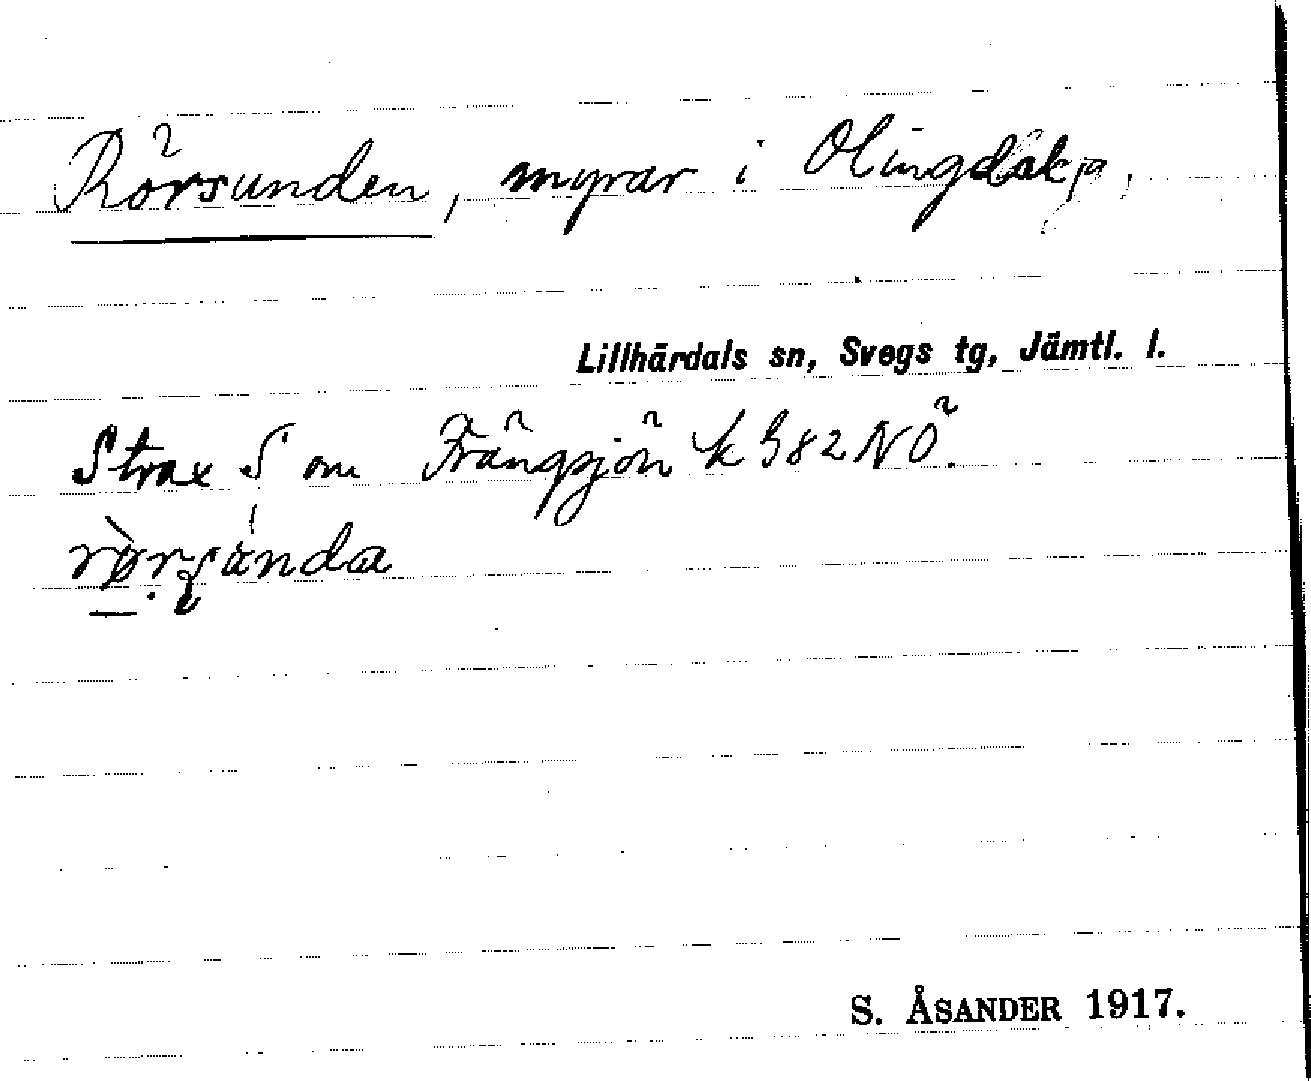 Rörsunden, myrar i Olingdskp,
Lillhärdals sn, Svegs tg, Jämtl. l.
Strax S om Frängsjön k 382 NÖ.
S. ÅSANDER 1917.